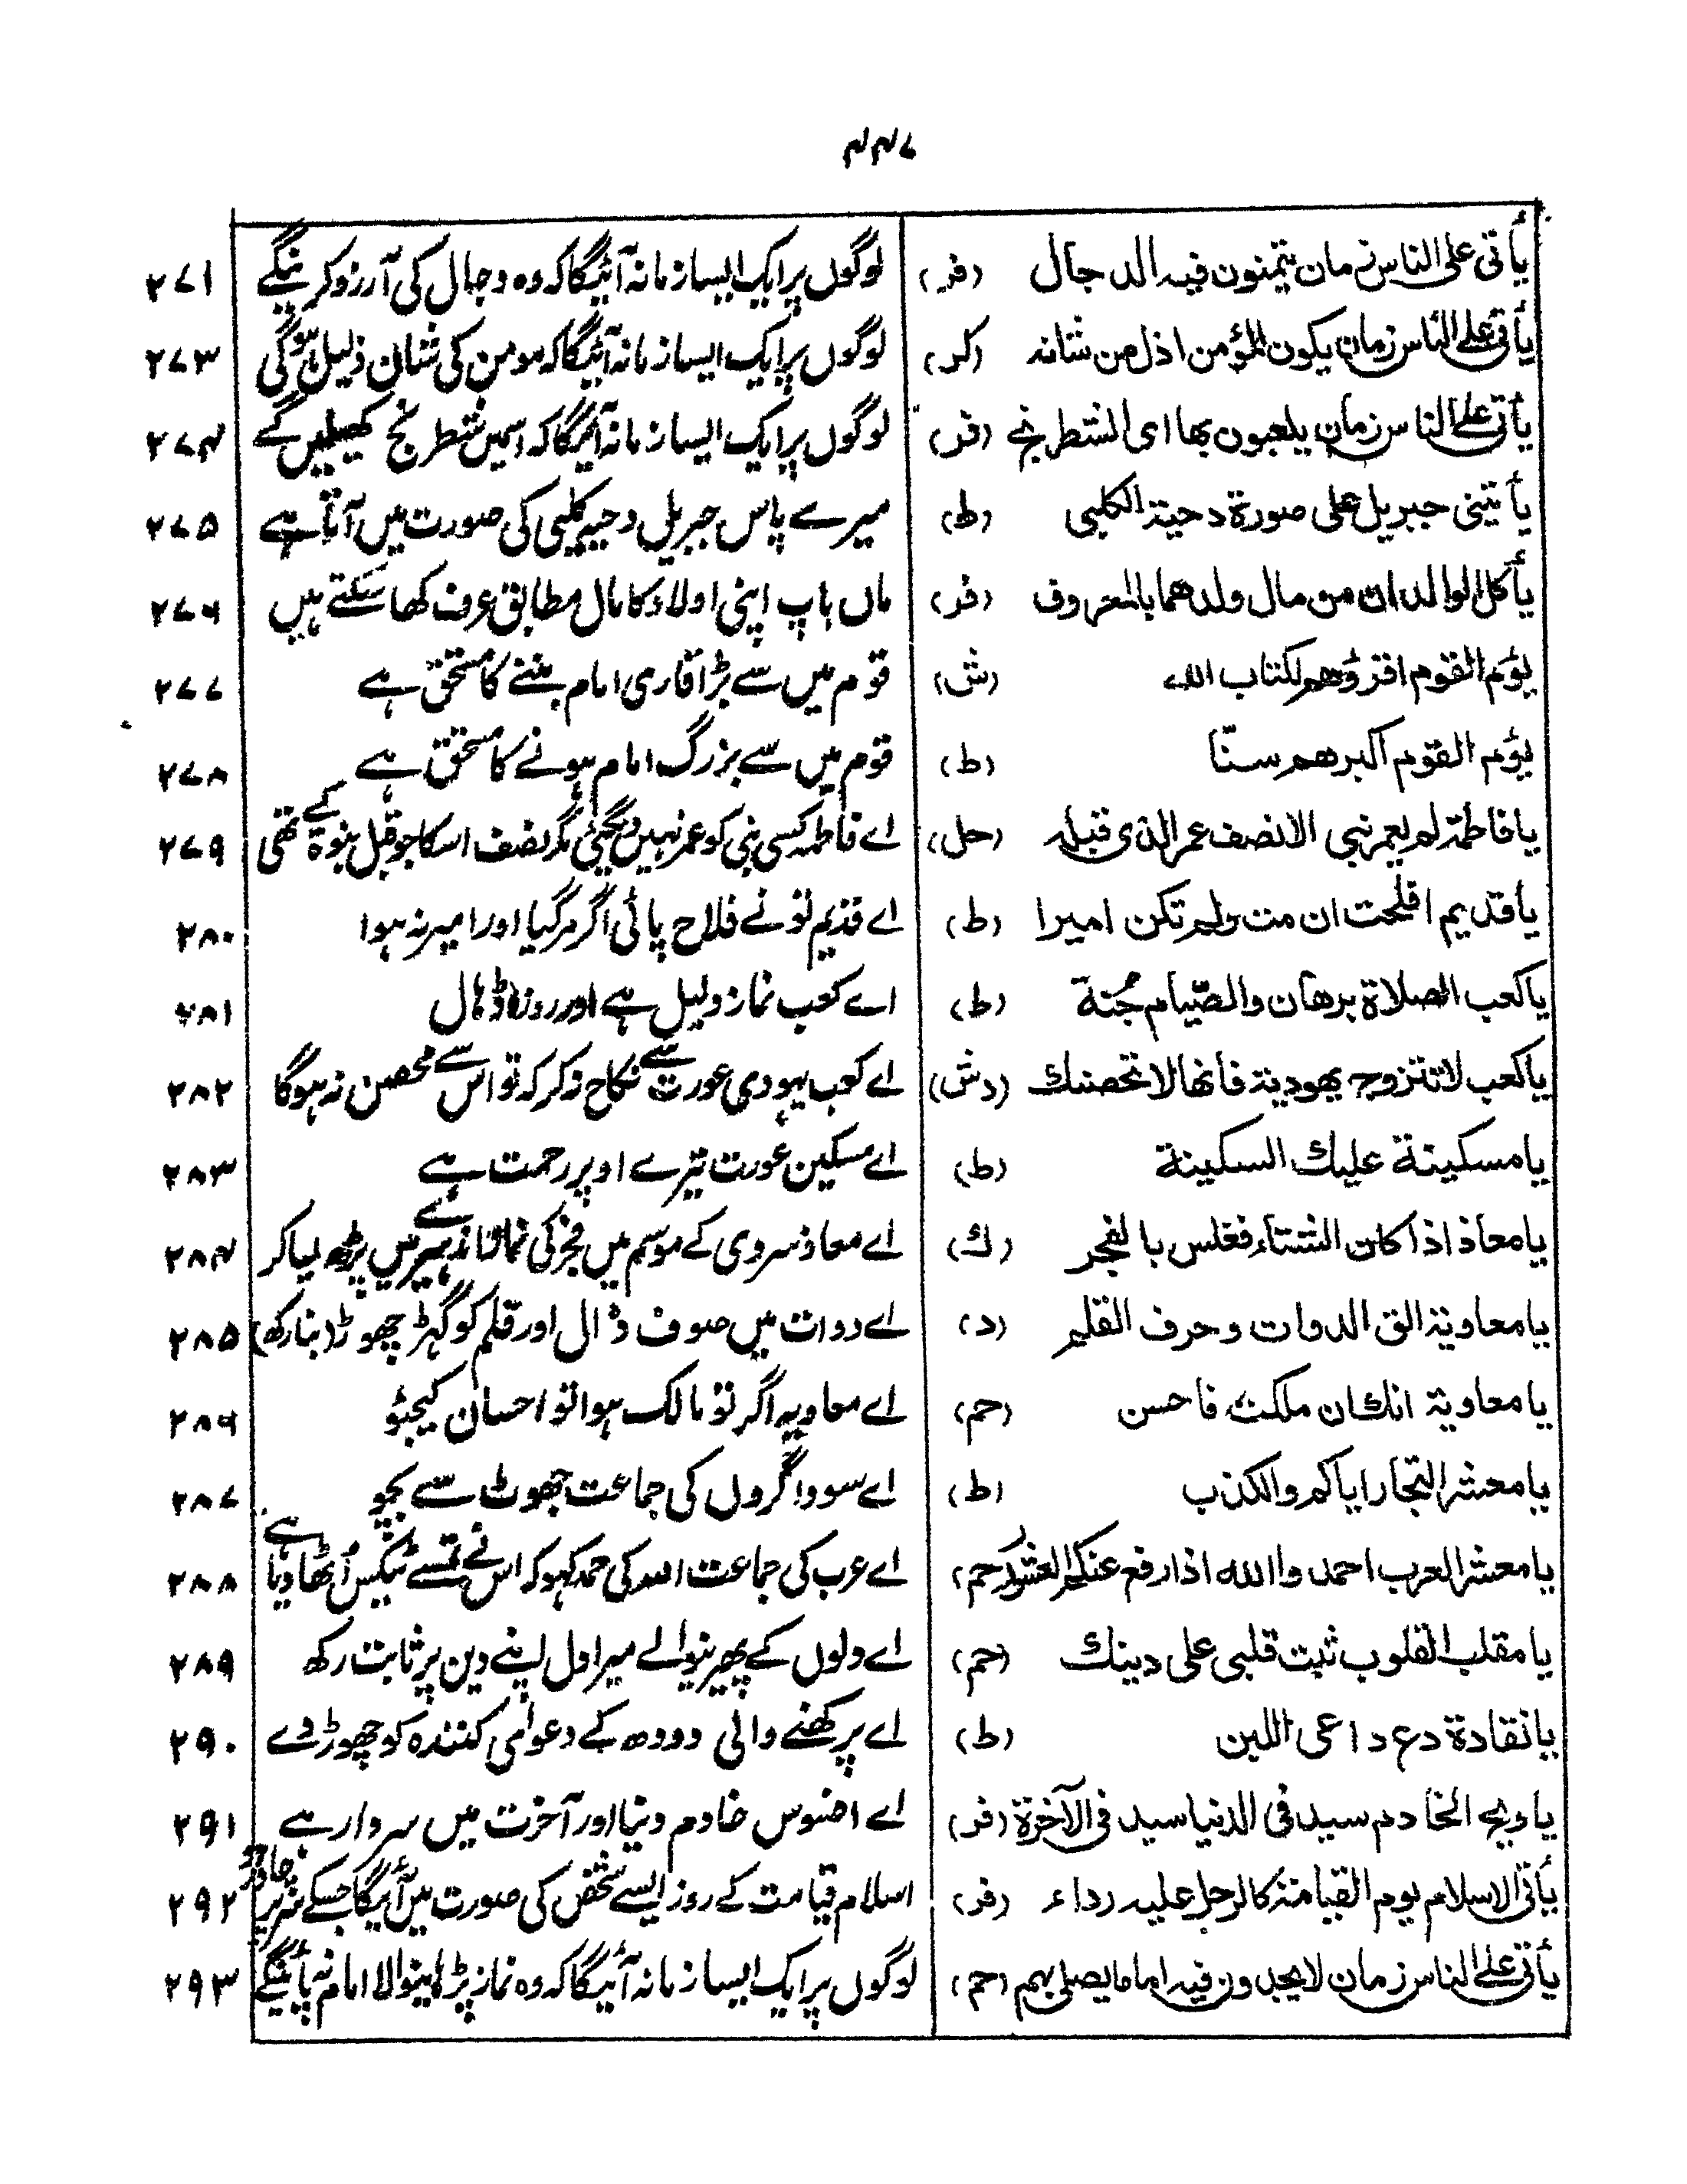 ۴۴۷
یأتی علی الناس زمان یتمنون فیہ الدجال (فر) لوگوں پر ایک ایسا زمانہ آئیگا کہ وہ دجال کی آرزو کرینگے ۲۷۱
یأتی علی الناس زمان یکون المؤمن اذل من شاتہ (کر) لوگوں پر ایک ایسا زمانہ آئیگا کہ مومن کی شان ذلیل ہوگی ۲۷۳
یأتی علی الناس زمان یلعبون بھا ای الشطرنج (فر) لوگوں پر ایک ایسا زمانہ آئیگا کہ اسمیں شطرنج کھیلیں گے ۲۷۴
یأتینی جبریل علی صورۃ دحیۃ الکلبی (ط) میرے پاس جبریل دحیہ کلبی کی صورت میں آتا ہے ۲۷۵
یأکل الوالدان من مال ولدھما بالمعروف (فر) ماں باپ اپنی اولاد کا مال مطابق عرف کھا سکتے ہیں ۲۷۶
یؤم القوم اقرؤھم لکتاب اللہ (ش) قوم میں سے بڑا قاری امام بننے کا مستحق ہے ۲۷۷
یؤم القوم اکبرھم سنّا (ط) قوم میں سے بزرگ امام ہونے کا مستحق ہے ۲۷۸
یا فاطمۃ لم یعمر نبی الا نصف عمر الذی قبلہ (حل) اے فاطمہ کسی نبی کو عمر نہیں دیجئی مگر نصف اسکا جو قبل نبوۃ کے تھی ۲۷۹
یا قدیم افلحت ان مت ولم تکن امیرا (ط) اے قدیم تو نے فلاح پائی اگر مر گیا اور امیر نہ ہوا ۲۸۰
یا کعب الصلاۃ برھان والصّیام جُنۃ (ط) اے کعب نماز دلیل ہے اور روزہ ڈہال ۲۸۱
یا کعب لا تتزوج یھودیۃ فانھا لا تحصنک (دش) اے کعب یہودی عورت سے نکاح نہ کر کہ تو اس سے محصن نہ ہوگا ۲۸۲
یا مسکینۃ علیک السکینۃ (ط) اے مسکین عورت تیرے اوپر رحمت ہے ۲۸۳
یا معاذ اذا کان الشتاء فغلس بالفجر (ك) اے معاذ سردی کے موسم میں فجر کی نماز اندہیرے میں پڑھ لیا کر ۲۸۴
یا معاویۃ الق الدوات وحرف القلم (د) اے دوات میں صوف ڈال اور قلم کو گہڑ چھوڑ (بنا رکھ) ۲۸۵
یا معاویۃ انک ان ملکت فاحسن (حم) اے معاویہ اگر تو مالک ہوا تو احسان کیجئو ۲۸۶
یا معشر التجار ایاکم والکذب (ط) اے سوداگروں کی جماعت جھوٹ سے بچو ۲۸۷
یا معشر العرب احمدوا اللہ اذا رفع عنکم العشور (حم) اے عرب کی جماعت اللہ کی حمد کہو کہ اس نے تمسے ٹیکس اُٹھا دیا ہے ۲۸۸
یا مقلب القلوب ثبت قلبی علی دینک (حم) اے دلوں کے پھیرنیوالے میرا دل اپنے دین پر ثابت رکھ ۲۸۹
یا نقادۃ دع داعی اللبن (ط) اے پرکھنے والی دودھ کے دعوٰی کنندہ کو چھوڑ دے ۲۹۰
یا ویح الخادم سید فی الدنیا سید فی الآخرۃ (فر) اے افسوس خادم دنیا اور آخرت میں سردار ہے ۲۹۱
یأتی الاسلام یوم القیامۃ کالرجل علیہ رداء (فر) اسلام قیامت کے روز ایسے شخص کی صورت میں آئیگا جسکے سر پر چادر ہو ۲۹۲
یأتی علی الناس زمان لا یجدون فیہ اماما یصلی بھم (حم) لوگوں پر ایک ایسا زمانہ آئیگا کہ وہ نماز پڑہانیوالا امام نہ پائینگے ۲۹۳